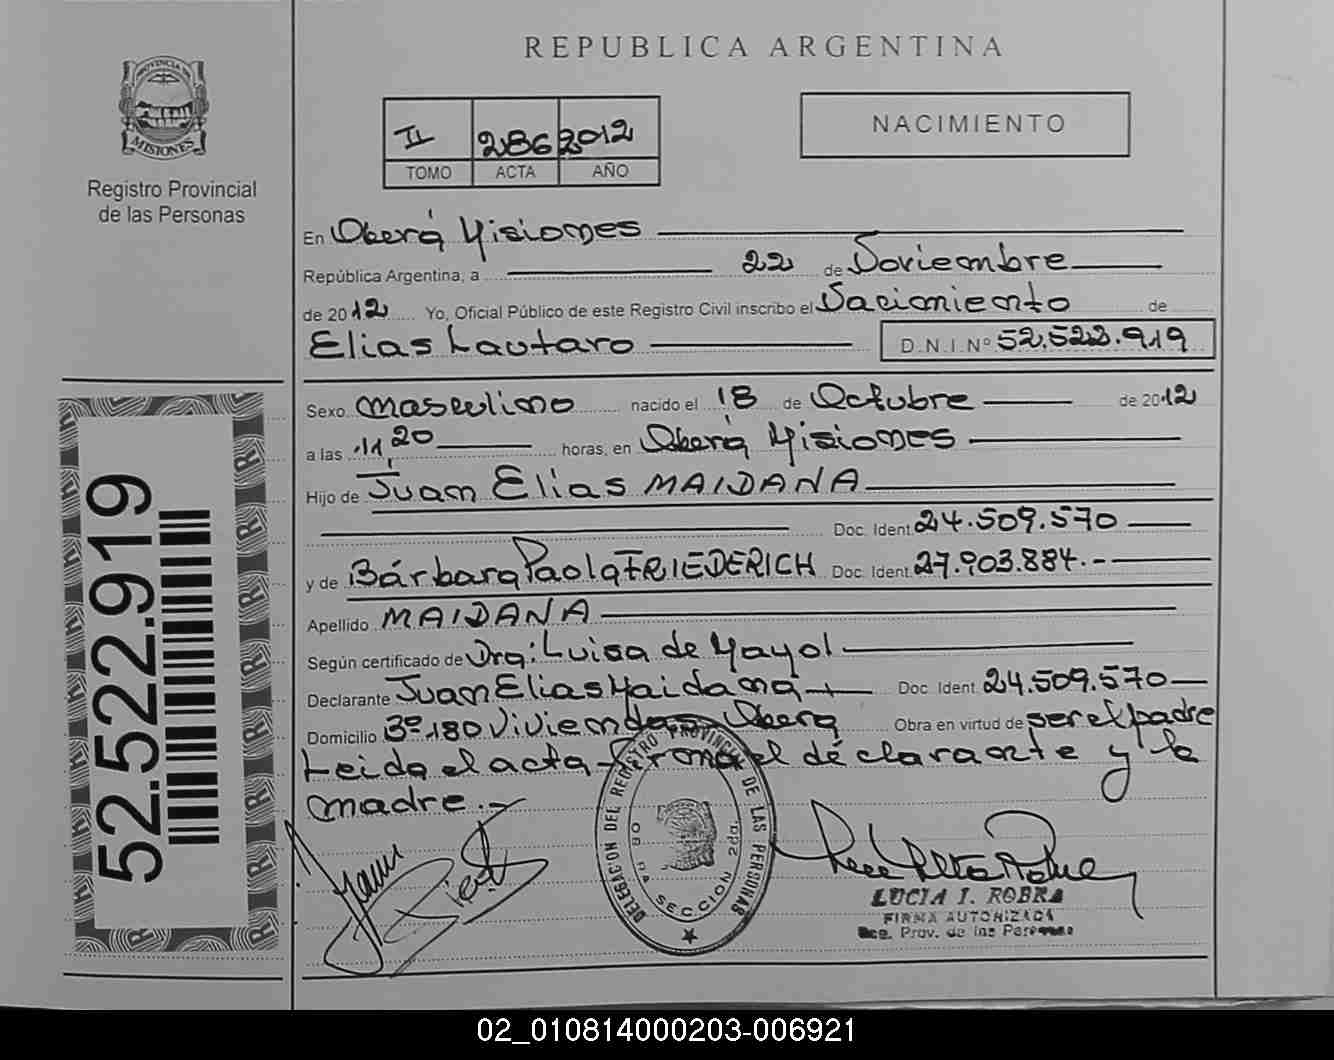 REPUBLICA ARGENTINA
PROVINCIA DE
MISIONES
Registro Provincial
de las Personas
II 286 2012
TOMO ACTA AÑO
NACIMIENTO
En Oberá Misiones
República Argentina, a 22 de Noviembre
de 2012 Yo, Oficial Público de este Registro Civil inscribo el Nacimiento de
Elias Lautaro D.N.I.Nº 52.522.919
Sexo masculino nacido el 18 de Octubre de 2012
a las 11,20 horas, en Oberá Misiones
Hijo de Juan Elias MAIDANA
Doc. Ident. 24.509.570
y de Bárbara Paola FRIEDERICH Doc. Ident. 27.903.884.-
Apellido MAIDANA
Según certificado de Dra: Luisa de Mayol
Declarante Juan Elias Maidana Doc. Ident. 24.509.570
Domicilio 3º 180 Viviendas Oberá Obra en virtud de ser el padre
Leida el acta firman el declarante y la
madre.-
52.522.919
DELEGACION DEL REGISTRO PROVINCIAL DE LAS PERSONAS
OBERA SECCION 2da.
LUCIA I. ROBRA
FIRMA AUTORIZADA
Reg. Prov. de las Personas
02_010814000203-006921